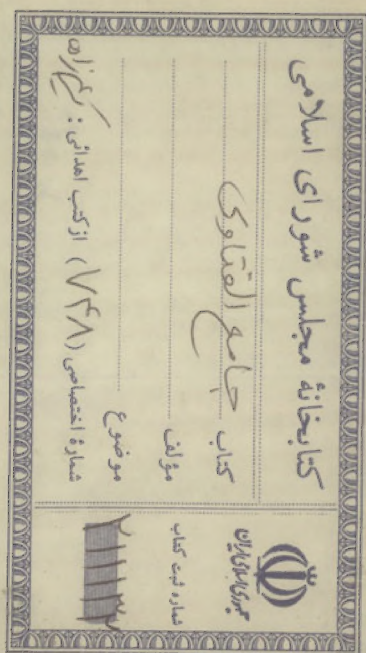 کتابخانهٔ مجلس شورای اسلامی
کتاب جامع الفتاوی
مؤلف
موضوع
شمارهٔ اختصاصی (۷۴۸) از کتب اهدائی :
جمهوری اسلامی ایران
شماره ثبت کتاب